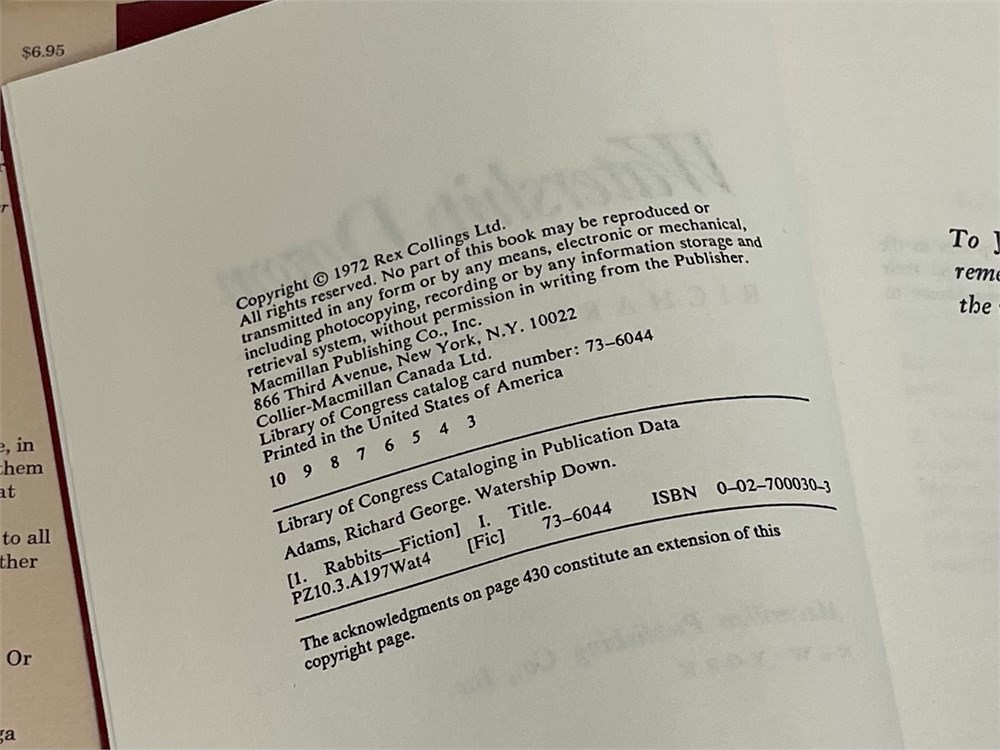 $6.95
e, in
them
at
to all
ther
Or
ga
Watership Down
Copyright © 1972 Rex Collings Ltd.
All rights reserved. No part of this book may be reproduced or
transmitted in any form or by any means, electronic or mechanical,
including photocopying, recording or by any information storage and
retrieval system, without permission in writing from the Publisher.
Macmillan Publishing Co., Inc.
866 Third Avenue, New York, N.Y. 10022
Collier-Macmillan Canada Ltd.
Library of Congress catalog card number: 73–6044
Printed in the United States of America
10 9 8 7 6 5 4 3
Library of Congress Cataloging in Publication Data
Adams, Richard George. Watership Down.
[1. Rabbits—Fiction] I. Title.
PZ10.3.A197Wat4 [Fic] 73–6044 ISBN 0–02–700030–3
The acknowledgments on page 430 constitute an extension of this
copyright page.
Macmillan Publishing Co., Inc.
NEW YORK
To J
reme
the